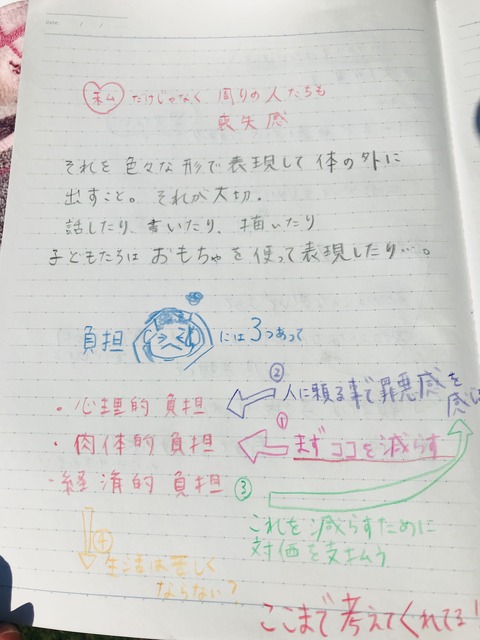 Date / /
私だけじゃなく 周りの人たちも
喪失感
それを色々な形で表現して体の外に
出すこと。それが大切.
話したり、書いたり、描いたり
子どもたちはおもちゃを使って表現したり…。
負担 には3つあって
② 人に頼る事で罪悪感を
感じ
・心理的負担
①
・肉体的負担 まずココを減らす
・経済的負担 ③
これを減らすために
対価を支払う
④
生活は苦しく
ならない?
ここまで考えてくれてる!